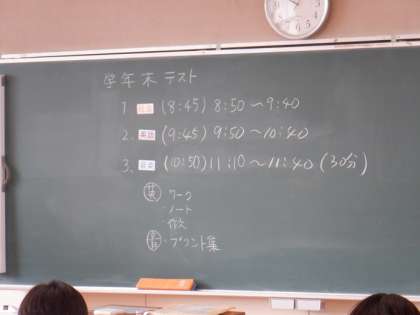 学年末テスト
1. 社会 (8:45) 8:50～9:40
2. 英語 (9:45) 9:50～10:40
3. 音楽 (10:50) 11:10～11:40 (30分)
ワーク
・ノート
・作文
・プリント集